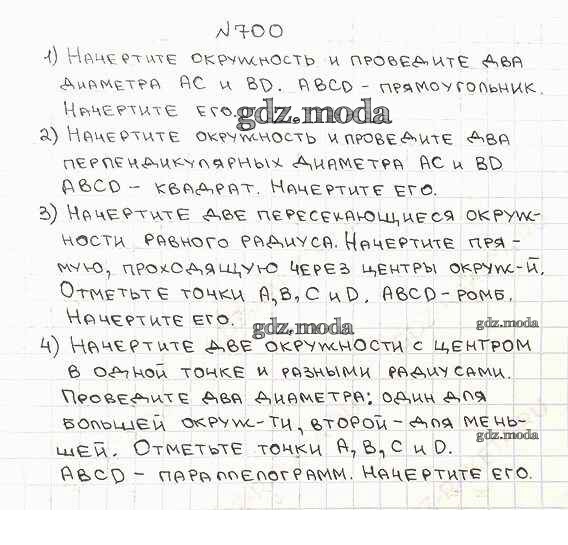 №700
1) Начертите окружность и проведите два
диаметра AC и BD. ABCD - прямоугольник.
Начертите его.
gdz.moda
2) Начертите окружность и проведите два
перпендикулярных диаметра AC и BD
ABCD - квадрат. Начертите его.
3) Начертите две пересекающиеся окруж-
ности равного радиуса. Начертите пря-
мую, проходящую через центры окруж-й.
Отметьте точки A, B, C и D. ABCD - ромб.
Начертите его.
gdz.moda
gdz.moda
4) Начертите две окружности с центром
в одной точке и разными радиусами.
Проведите два диаметра: один для
большей окруж-ти, второй - для мень-
шей. Отметьте точки A, B, C и D.
gdz.moda
ABCD - параллелограмм. Начертите его.